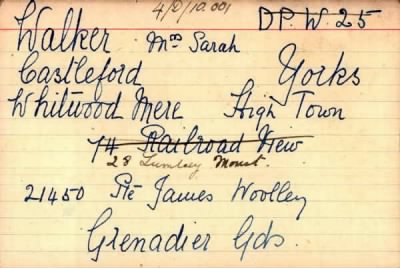 4/D/10.001
D.P.W. 25
Walker Mrs Sarah
Castleford Yorks
Whitwood Mere High Town
74 Railroad View
28 Lumley Mount.
21450 Pte James Woolley
Grenadier Gds.